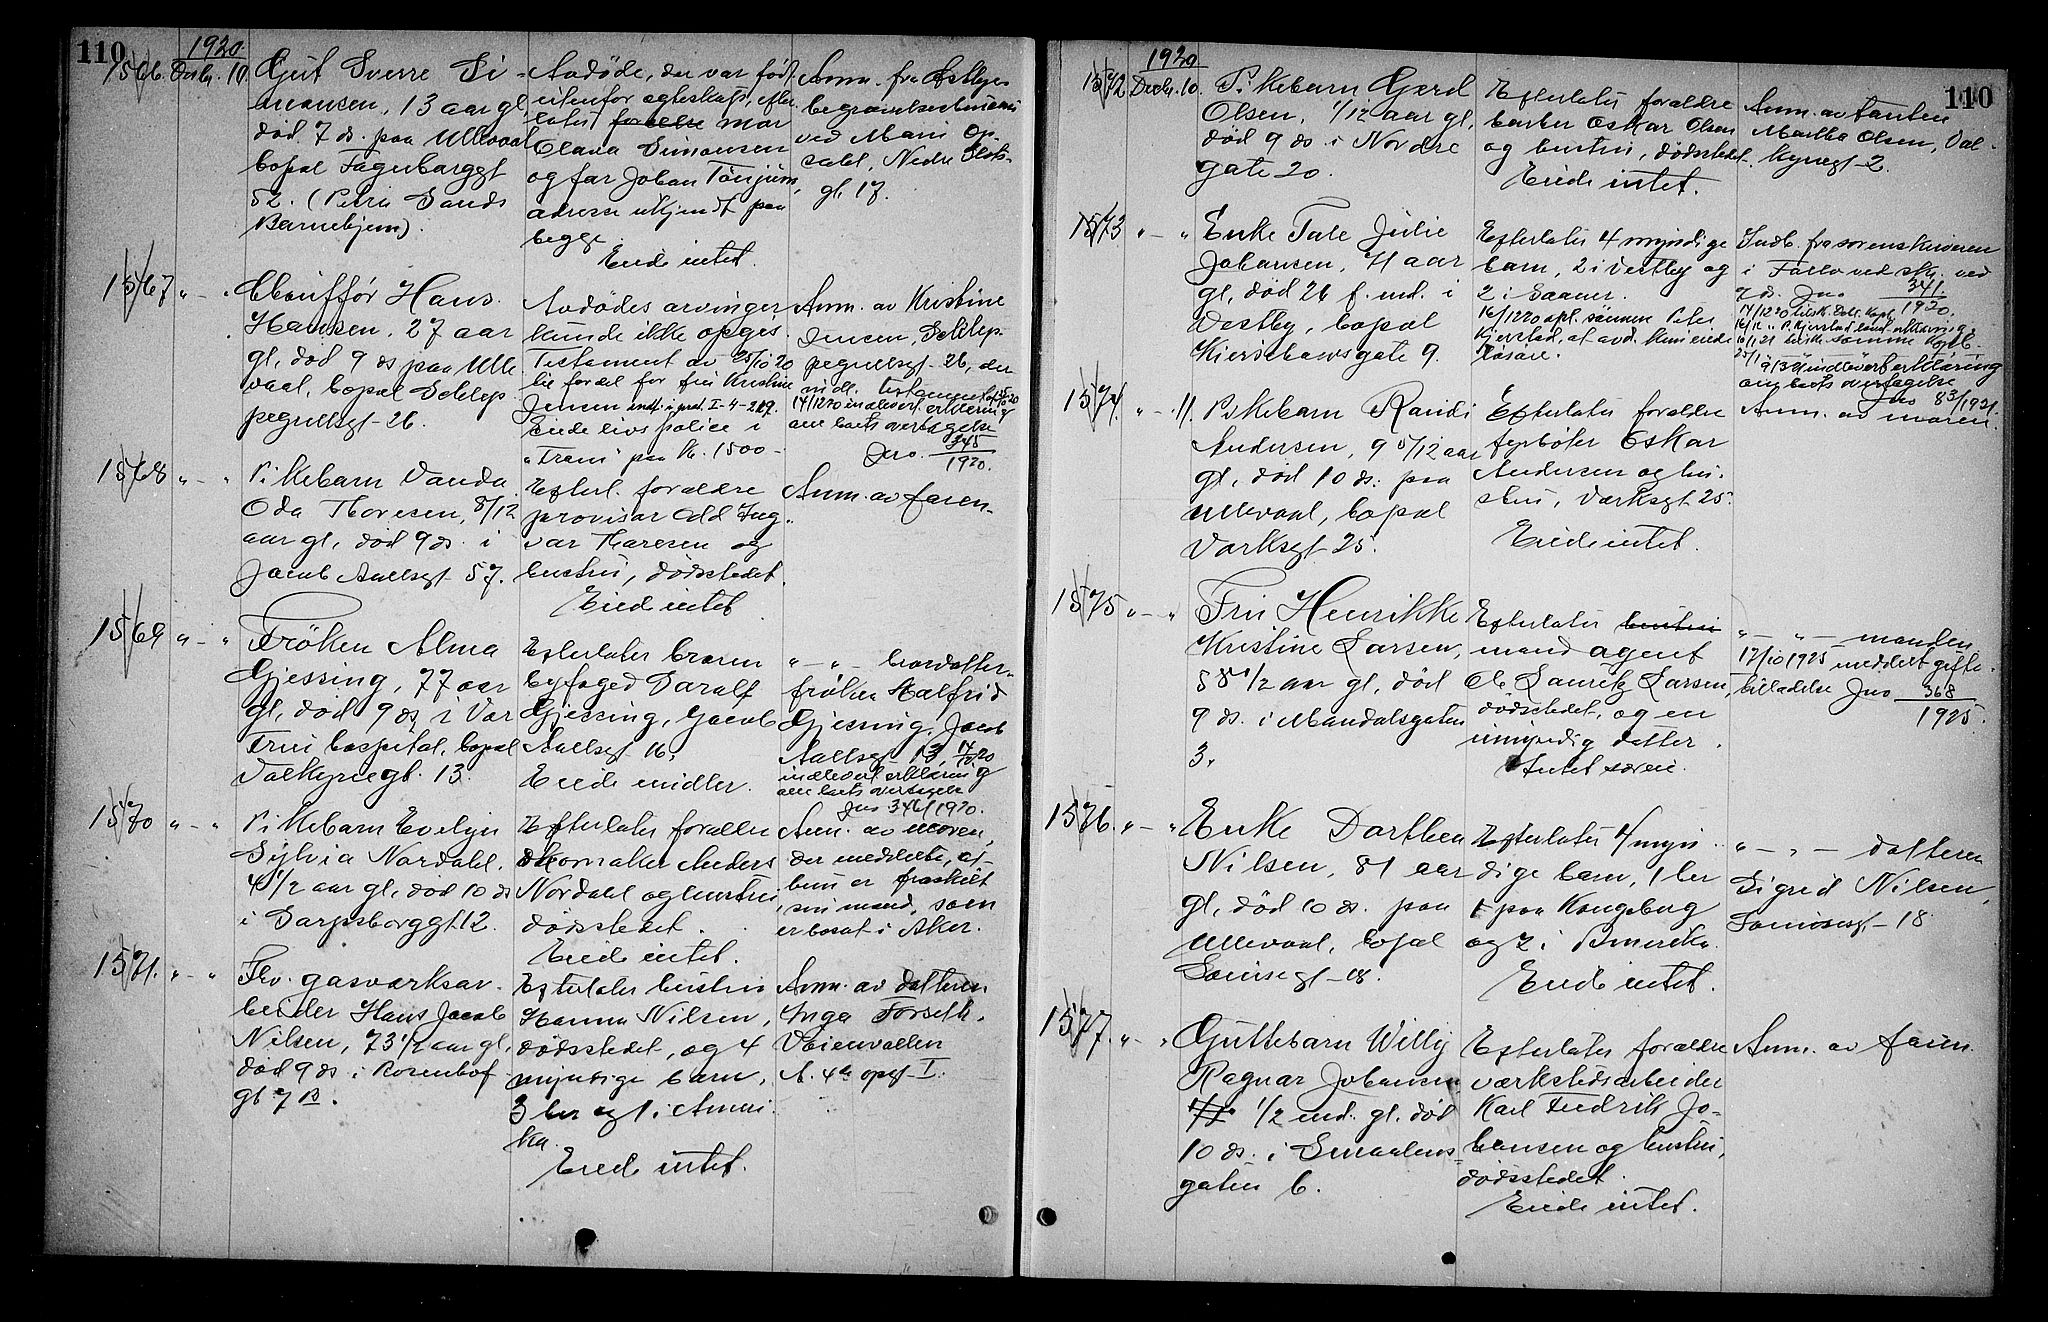 110
1920
1566. Decbr. 10.
Gut Sverre Si-
monsen, 13 aar gl,
död 7 ds. paa Ullevaal
bopæl Fagerborggt
52. (Petra Sands
Barnehjem).
Avdöde, der var född
utenfor egteskap, efter-
later forældre mor
Olava Simonsen
og far Johan Tönjum,
adresse ukjendt paa
begge.
Eiede intet.
Anm. fra Østbyes
begravelsesbureau
ved Marie Op-
sahl, Nedre Slots-
gt. 17.
1567 " - "
Chauffør Hans
Hansen, 27 aar
gl, död 9 ds paa Ulle
vaal, bopæl Schlep
pegrellsgt. 26.
Avdödes arvinger
kunde ikke opgis.
Testament av 25/10 20
til fordel for frk Kristine
Jensen indf. i prot. I-4-219.
Eiede livspolice i
"Fram" paa Kr. 1500 -
Anm. av Kristine
Jensen, Schlep
pegrellsgt. 26, der
indl. testamentet av 25/10 20
14/12 20 indlevert erklæring
om boets overtagelse
Jno. 345/1920.
1568 " - "
Pikebarn Vanda
Oda Thoresen, 8/12
aar gl, död 9 ds. i
Jacob Aallsgt 57.
Efterl. forældre
provisor Odd Ing-
var Thoresen og
hustru, dödsstedet.
Eied intet
Anm. av faren.
1569 " - "
Fröken Alma
Gjessing, 77 aar
gl, död 9 ds i Vor
Frue hospital, bopæl
Valkyriegt. 13.
Efterlater broren
byfoged Daralf
Gjessing, Jacob
Aallsgt 16.
Eiede midler.
" - " - brordatter
fröken Halfrid
Gjessing, Jacob
Aallsgt 13, 14/12 20
indlevert erklæring
om boets overtagelse
Jno 346/1920.
1570 " - "
Pikebarn Evelyn
Sylvia Nordahl.
4 1/2 aar gl, död 10 ds
i Sarpsborggt 12.
Efterlater forældre
skomaker Anders
Nordahl og hustru
dödsstedet.
Eied intet.
Anm. av moren,
der meddelte, at
hun er fraskilt
sin mand, som
er bosat i Aker.
1571. " - "
Fhv. gasverksar-
beider Hans Jacob
Nilsen, 73 1/2 aar gl,
död 9 ds. i Rosenhof
gt 7 B.
Efterlater hustru
Hanna Nilsen,
dödsstedet, og 4
myndige barn,
3 her og 1 i Ameri
ka.
Eiede intet.
Anm. av datteren
Inga Forseth.
Veienvollen
A. 4de opg I.
110
1920
1572 Decbr. 10.
Pikebarn Gerd
Olsen, 1/12 aar gl,
död 9 ds. i Nordre
gate 20.
Efterlater forældre
barber Oskar Olsen
og hustru, dödsstedet.
Eiede intet.
Anm. av tanten
Martha Olsen, Val-
kyriegt 2.
1573 " - "
Enke Tale Julie
Johansen, 71 aar
gl, död 26 f. md. i
Vestby, bopæl
Kierschowsgate 9.
Efterlater 4 myndige
barn, 2 i Vestby og
2 i Saaner.
16/12 20 opl. sönnen Peter
Kjerstad, at avd. kun eiede
lösøre.
Indb. fra sorenskriveren
i Follo ved skr. ved
9 ds. Jno 341/1920.
om boets overtagelse
Jno 83/1921.
1574 " - 11.
Pikebarn Randi
Andersen, 9 5/12 aar
gl, död 10 ds. paa
Ullevaal, bopæl
Verksgt 25.
Efterlater forældre
fyrböter Oskar
Andersen og hu-
stru, Verksgt 25.
Eiede intet.
Anm. av moren.
1575 " - "
Fru Henrikke
Kristine Larsen,
58 1/2 aar gl, död
9 ds. i Mandalsgaten
3.
Efterlater hustru
mand agent
Ole Lauritz Larsen,
dödsstedet, og en
umyndig datter.
Intet særeie.
" - " - manden
17/10 1925 meddelt gifte-
tilladelse Jno 368/1925.
1576. " - "
Enke Dorthea
Nilsen, 81 aar
gl, död 10 ds. paa
Ullevaal, bopæl
Sannesgt - 18.
Efterlater 4 myn-
dige barn, 1 her
1 paa Kongsberg
og 2 i Amerika.
Eiede intet.
" - " - datteren
Sigrid Nilsen,
Sannesgt - 18
1577. " - "
Guttebarn Willy
Ragnar Johansen
1/2 md. gl. död
10 ds. i Smaalens-
gaten 6.
Efterlater forældre
værkstedsarbeider
Karl Fredrik Jo-
hansen og hustru,
dödsstedet.
Eiede intet.
Anm. av faren.